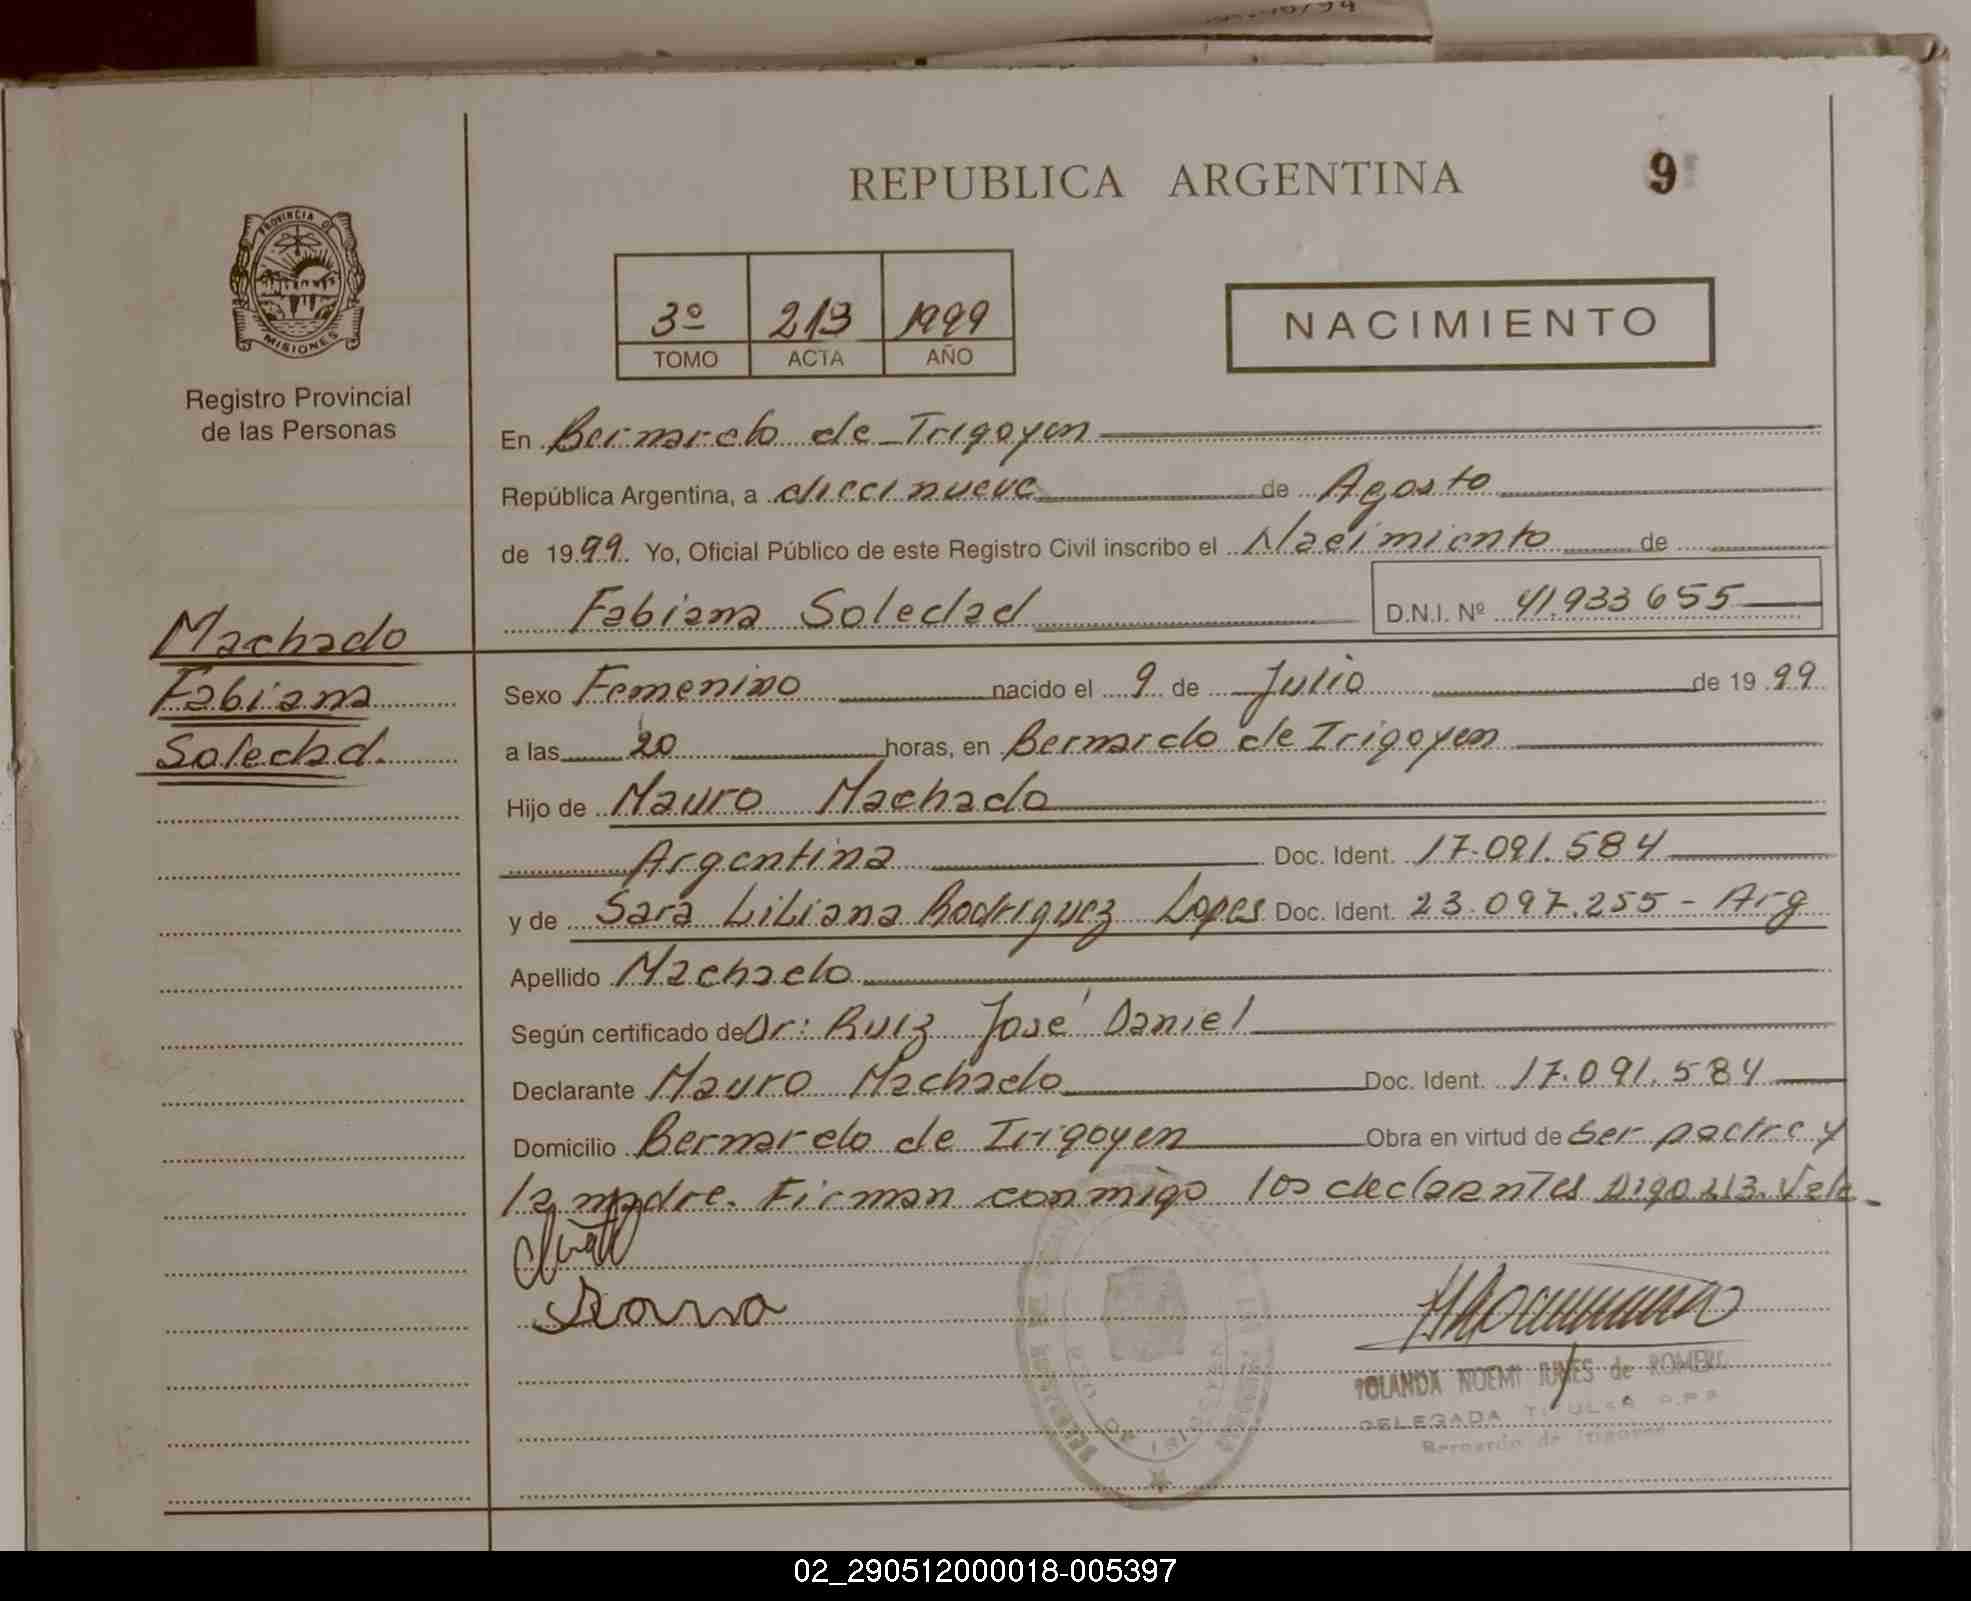 REPUBLICA ARGENTINA
9
PROVINCIA DE
MISIONES
Registro Provincial
de las Personas
3º 213 1999
TOMO ACTA AÑO
NACIMIENTO
En Bernardo de Irigoyen
República Argentina, a diecinueve de Agosto
de 1999. Yo, Oficial Público de este Registro Civil inscribo el Nacimiento de
Fabiana Soledad D.N.I. Nº 41.933655
Machado
Fabiana
Soledad.
Sexo Femenino nacido el 9 de Julio de 1999
a las 20 horas, en Bernardo de Irigoyen
Hijo de Mauro Machado
Argentina Doc. Ident. 17.091.584
y de Sara Liliana Rodriguez Lopes Doc. Ident. 23.097.255 - Arg
Apellido Machado
Según certificado de Dr: Ruiz José Daniel
Declarante Mauro Machado Doc. Ident. 17.091.584
Domicilio Bernardo de Irigoyen Obra en virtud de ser padre y
la madre. Firman conmigo los declarantes Digo 213. Vale
YOLANDA NOEMI de ROMERO
DELEGADA TITULAR R.P.P
Bernardo de Irigoyen
02_290512000018-005397